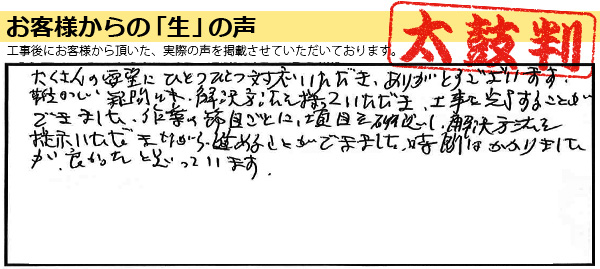 お客様からの「生」の声
太鼓判
工事後にお客様から頂いた、実際の声を掲載させていただいております。
たくさんの要望にひとつひとつ対応いただき、ありがとうございます。
難かしい難関も、解決方法を探っていただき、工事を完了することが
できました。作業の節目ごとに、項目を確認し、解決方法を
提示いただきながら進めることができました。時間はかかりました
が、良かったと思っています。